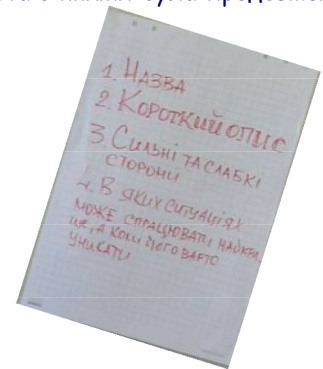 1. НАЗВА
2. КОРОТКИЙ ОПИС
3. СИЛЬНІ ТА СЛАБКІ
СТОРОНИ
4. В ЯКИХ СИТУАЦІЯХ
МОЖЕ СПРАЦЮВАТИ НАЙКРА
ЩЕ, А КОЛИ ЙОГО ВАРТО
УНИКАТИ